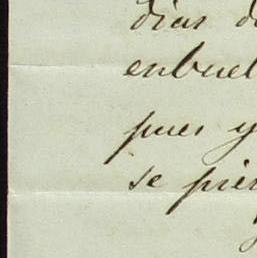 dias d
enbuel
pues y
se pier